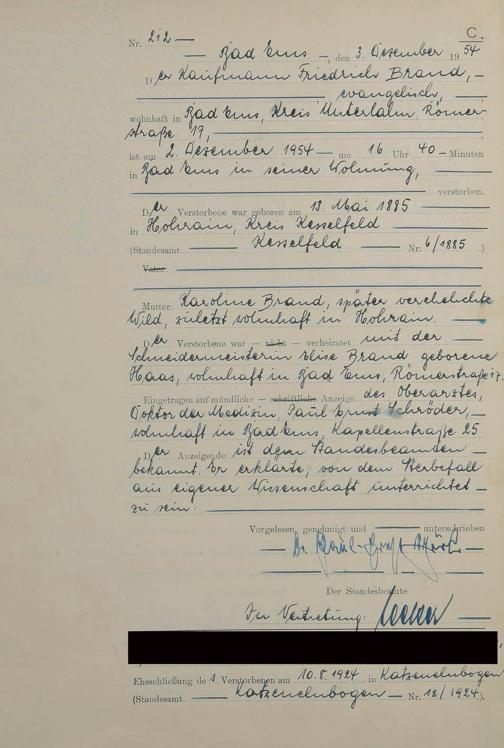 C.
Nr. 212 —
— Bad Ems —, den 3. Dezember 1954
Der Kaufmann Friedrich Brand, —
evangelisch, —
wohnhaft in Bad Ems, Kreis Unterlahn, Römer-
straße 17, —
ist am 2. Dezember 1954 — um 16 Uhr 40 — Minuten
in Bad Ems in seiner Wohnung, —
verstorben.
Der Verstorbene war geboren am 13. Mai 1885
in Hohrain, Kreis Kesselfeld
(Standesamt — Kesselfeld — Nr. 6/1885)
Vater: —
Mutter: Karoline Brand, später verehelichte
Wild, zuletzt wohnhaft in Hohrain. —
Der Verstorbene war — nicht — verheiratet mit der —
Schneidermeisterin Elise Brand geborene
Haas, wohnhaft in Bad Ems, Römerstraße 17.
Eingetragen auf mündliche — schriftliche Anzeige des Oberarztes,
Doktor der Medizin, Paul Ernst Schröder, —
wohnhaft in Bad Ems, Kapellenstraße 25
Der Anzeigende ist dem Standesbeamten —
bekannt. Er erklärte, von dem Sterbefall
aus eigener Wissenschaft unterrichtet —
zu sein. —
Vorgelesen, genehmigt und — unterschrieben
— Dr. Paul-Ernst —
Der Standesbeamte
In Vertretung:
Eheschließung de Verstorbenen am 10.8.1924 in Katzenelnbogen
(Standesamt — Katzenelnbogen — Nr. 12/1924).